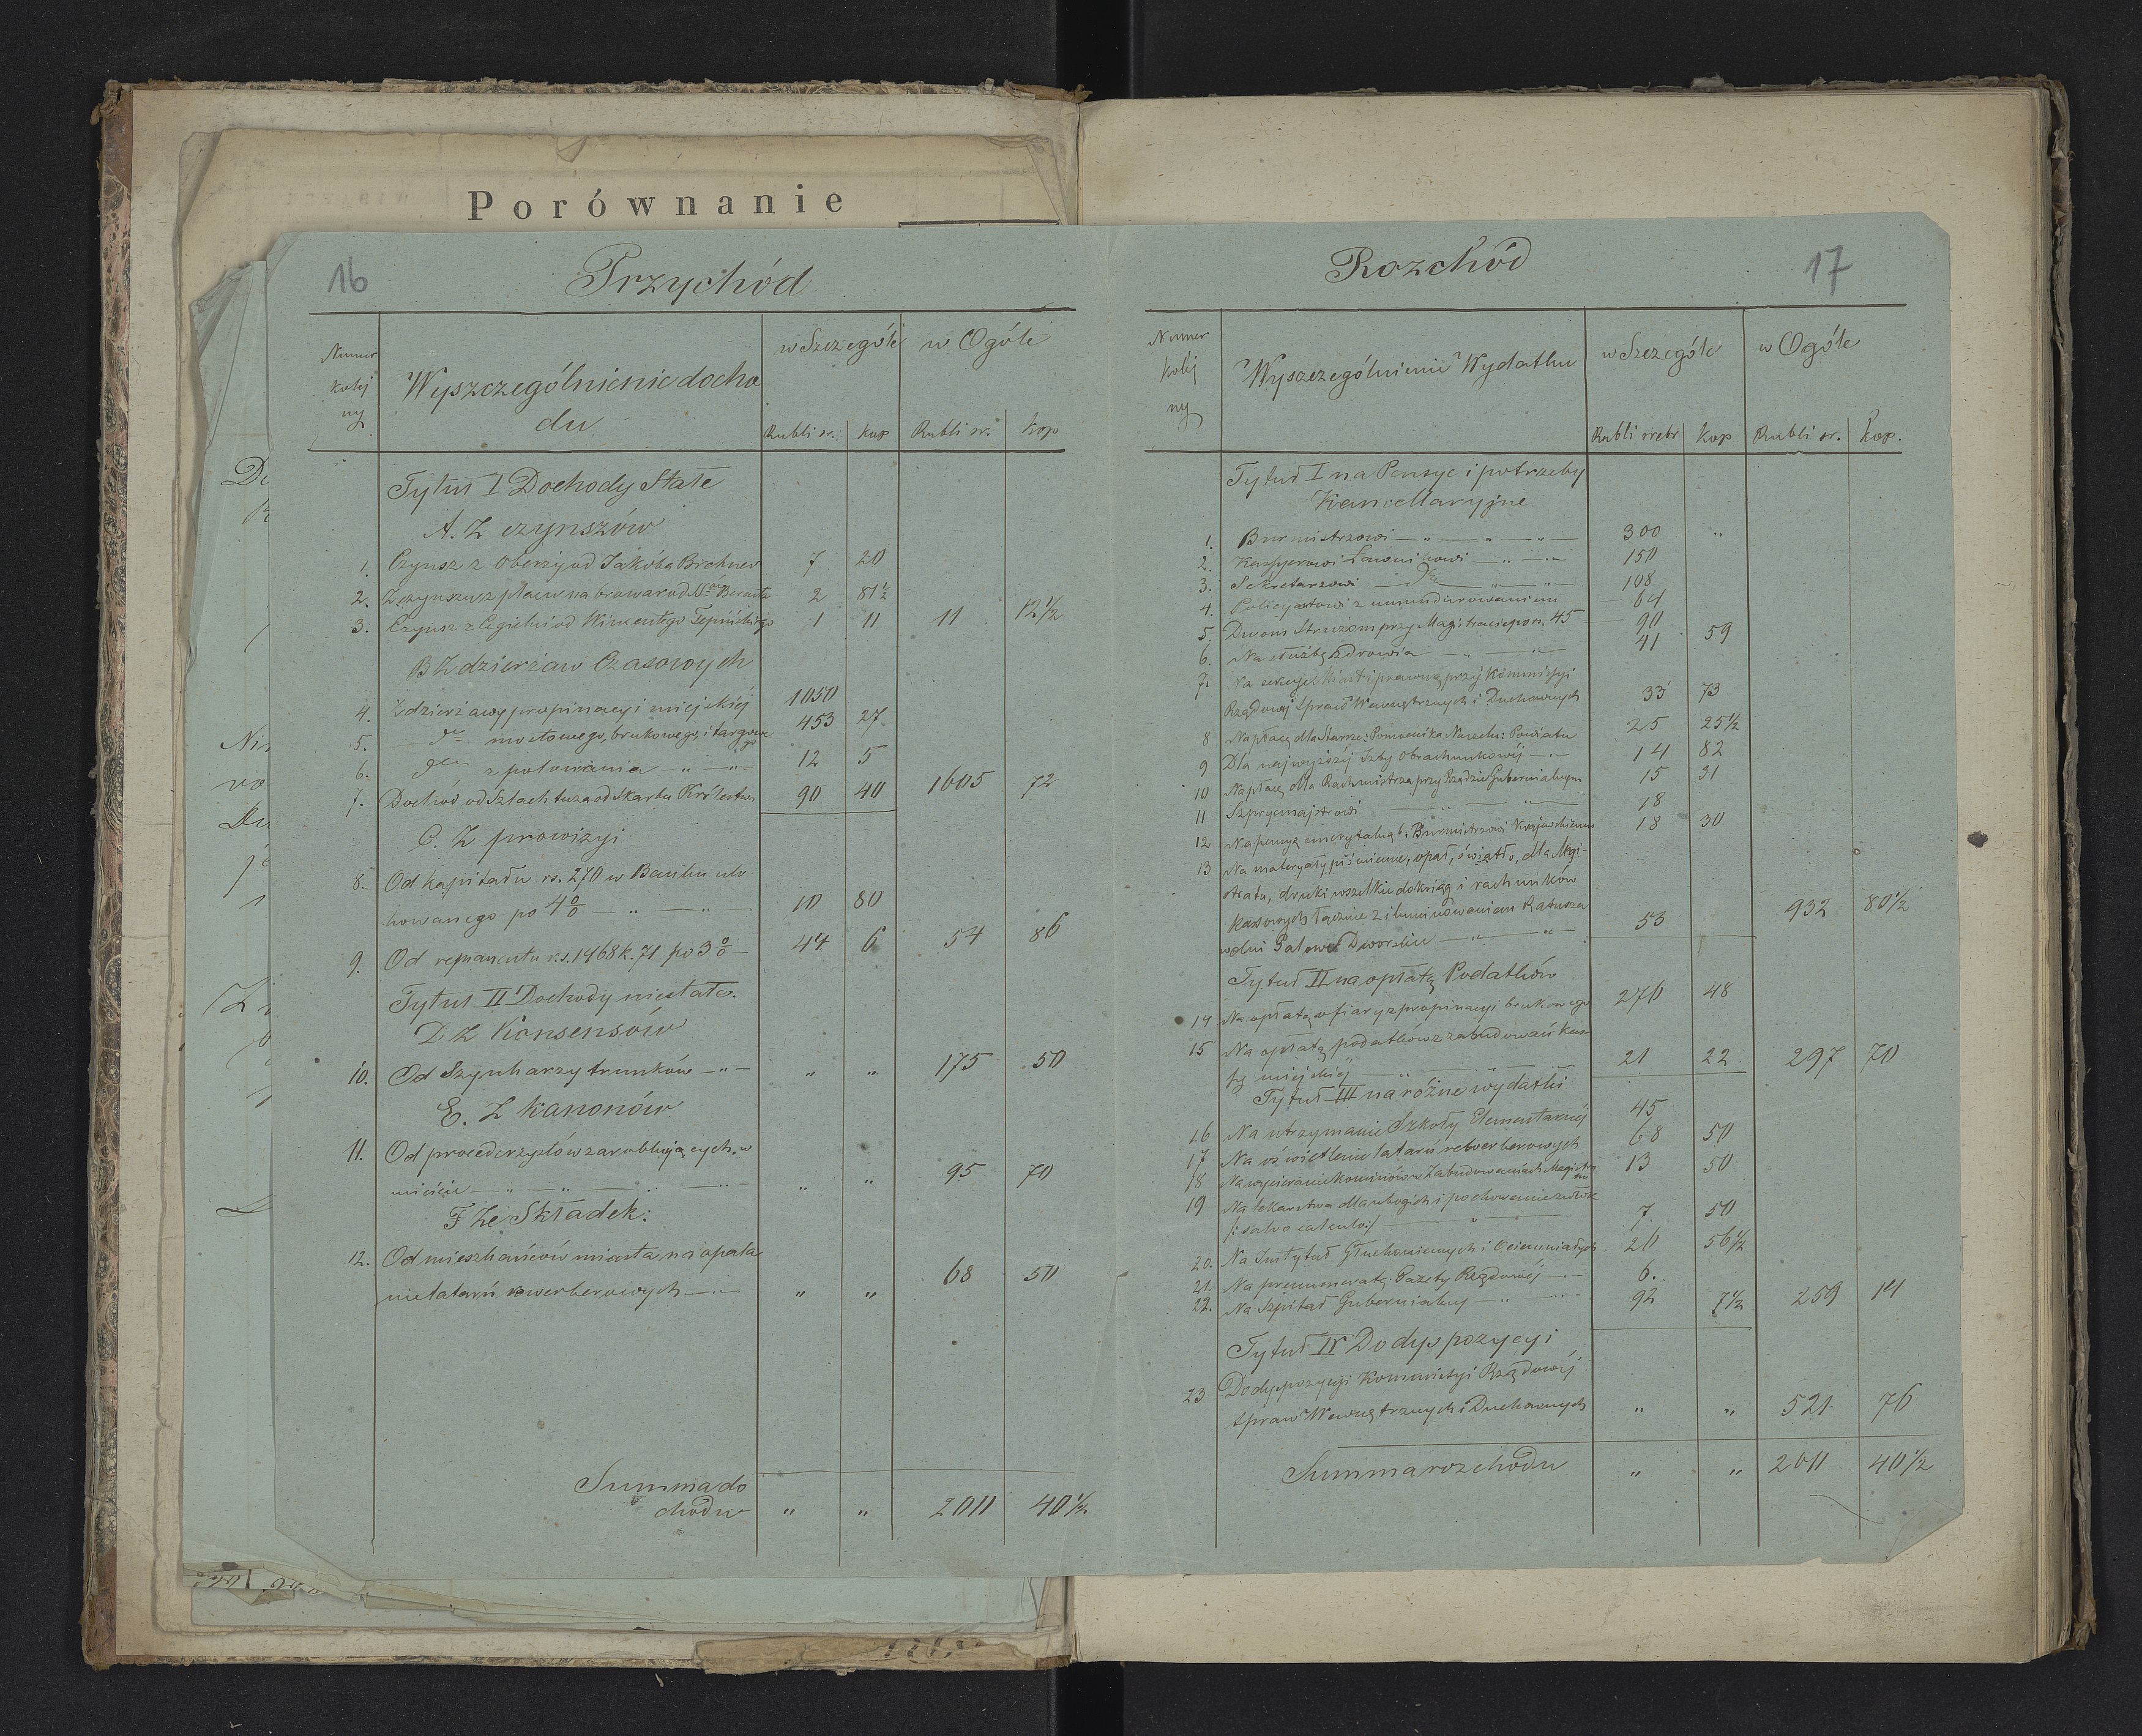 Porównanie
16
Przychód
Numer
kolej
ny
Wyszczególnienie docho
du
w Szczególe
w Ogóle
Rubli sr.
kop
Rubli sr.
kop
Tytuł I Dochody Stałe
A. Z czynszów
1. Czynsz z oberży od Jakóba 7 20
2. Z czynszu z placu na browar od 2 81½
3. Czynsz z Cegielni od Wincentego 1 11 11 12½
B Z dzierżaw Czasowych
4. Z dzierżawy propinacyi miejskiéj 1050
5. dto mostowego, brukowego, i targowe
go 453 27
6. dto z polowania — „ — „ — 12 5
7. Dochód od Szlachtuza od Skarbu Królestwa 90 40 1605 72
C. Z prowizyi
8. Od kapitału rs. 270 w Banku ulo
kowanego po 4% — „ — „ 10 80
9. Od remanentu rs. 1468 k. 71 po 3% — 44 6 54 86
Tytuł II Dochody niestałe.
D. Z Konsensów
10. Od Szynkarzy trunków — „ — „ „ 175 50
E. Z kanonów
11. Od procederzystów zarobkujących w
mieście — „ — „ — „ „ 95 70
F Ze Składek:
12. Od mieszkańców miasta na opala
nie latarń rewerberowych — „ „ 68 50
Summa do
chodu „ „ 2011 40½
Rozchód
17
Numer
kolej
ny
Wyszczególnienie Wydatku
w Szczególe
w Ogóle
Rubli srebr
Kop
Rubli sr.
Kop.
Tytuł I na Pensye i potrzeby
Kancellaryjne
1. Burmistrzowi — „ — „ — „ — 300 „
2. Kassyerowi Ławnikowi — „ — 150
3. Sekretarzowi — „ — „ — 108
4. Policyantowi z umundurowaniem — 64
5. Dwom Stróżom przy Magistracie po rs. 45 — 90
6. Na służbę zdrowia — „ — „ 41 59
7. Na sekcyę Miast i prawną przy Kommissyi
Rządowéj Spraw Wewnętrznych i Duchownych 33 73
8 Na płacę dla Starsze: Pomocnika Naczeln: Powiatu 25 25½
9 Dla najwyższéj Izby Obrachunkowéj — „ — 14 82
10 Na płacę dla Rachmistrza przy Rządzie Gubernialnym 15 31
11 Szprycmajstrowi 18
12 Na pensyę emerytalną b. Burmistrzowi Krajewskiemu 18 30
13 Na materyały piśmienne, opał, światło, dla Magi-
stratu, druki wszelkie do ksiąg i rachunków
kasowych łącznie z iluminowaniem Ratusza
w dni Galowe Dworskie — „ — „ — 53 932 80½
Tytuł II na opłatę Podatków
14 Na opłatę ofiary z propinacyi brukowego 276 48
15 Na opłatę podatków z zabudowań kas-
sy miejskiéj — „ 21 22 297 70
Tytuł III na różne wydatki
16 Na utrzymanie Szkoły Elementarnéj 45
17 Na oświetlenie latarń rewerberowych 68 50
18 Na wycieranie kominów w Zabudowaniach Magistra
tu 13 50
19 Na lekarstwa dla ubogich i pochowanie zwłok
/: salvo calculo:/ — „ — 7 50
20. Na Instytut Głuchoniemych i Ociemniałych 26 56½
21. Na prenumeratę Gazety Rządowéj — 6.
22. Na Szpital Gubernialny — „ — 92 7½ 259 14
Tytuł IV Do dyspozycyi
23 Do dyspozycyi Kommissyi Rządowéj
Spraw Wewnętrznych i Duchownych „ „ 521 76
Summa rozchodu „ „ 2011 40½